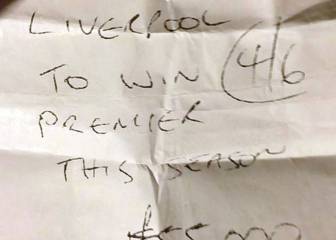 LIVERPOOL
TO WIN 4/6
PREMIER
THIS SEASON